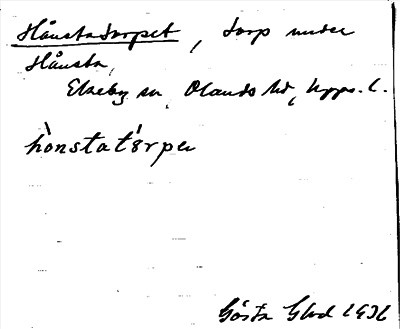 Hånstatorpet, torp under
Hånsta,
Ekeby sn, Olands hd, Upps. l.
hònstatårpeṇ
Gösta Glad 1936